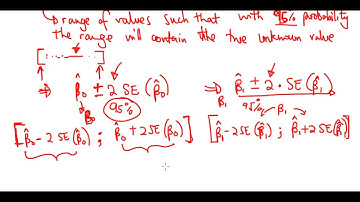 ↳ range of values such that with 95% probability
the range will contain the true unknown value
[ ............ ]
⇒ β̂₀ ± 2 SE (β̂₀) ⇒ β̂₁ ± 2 · SE (β̂₁)
β₀ 95% β₁ 95% β₁
[β̂₀ - 2 SE (β̂₀) ; β̂₀ + 2 SE (β̂₀)] [β̂₁ - 2 SE (β̂₁) ; β̂₁ + 2 SE (β̂₁)]